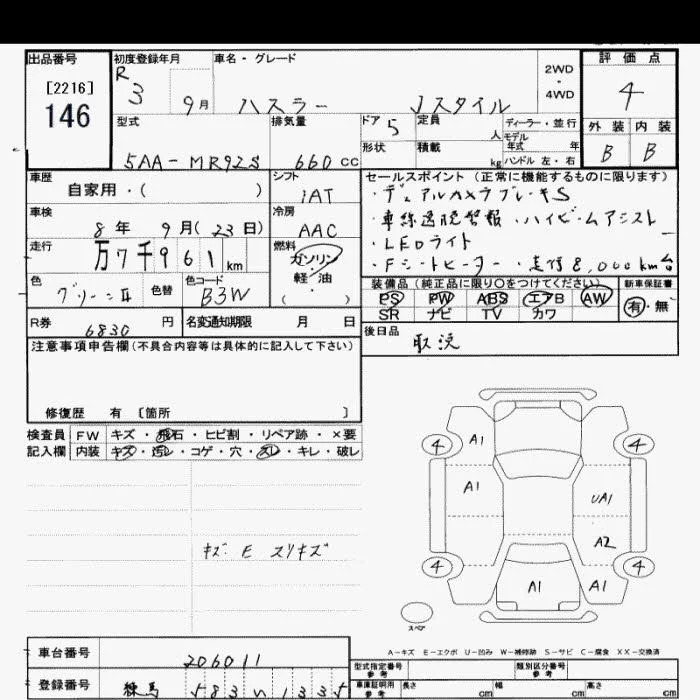 出品番号 初度登録年月 車名・グレード 評価点
[2216]
146
R 3 9月 ハスラー Jスタイル 2WD・4WD 4
型式 排気量 ドア 5 定員 人 ディーラー・並行 外装 内装
形状 積載 kg モデル年式 年 ハンドル 左・右 B B
5AA-MR92S 660 CC
車歴 シフト セールスポイント (正常に機能するものに限ります)
自家用・( ) iAT ・デュアルカメラブレーキS
車検 冷房 ・車線逸脱警報・ハイビームアシスト
8年 9月(23日) AAC ・LEDライト
走行 燃料 ・Fシートヒーター・走行8,000km台
万7千961km ガソリン・軽・油
( )
色 色替 色コード 装備品 (純正品に限り〇をつけてください) 新車保証書
グリーンⅡ B3W PS PW ABS エアB AW 有・無
SR ナビ TV カワ
R券 6830 円 名変通知期限 月 日 後日品
取説
注意事項申告欄(不具合内容等は具体的に記入して下さい)
修復歴 有 〔箇所 〕
検査員 FW キズ・飛石・ヒビ割・リペア跡・×要
記入欄 内装 キズ・汚レ・コゲ・穴・スレ・キレ・破レ
キズ E スリキズ
4 A1 4
A1 UA1
A2
4 A1 A1 4
スペア
A-キズ E-エクボ U-凹み W-補修跡 S-サビ C-腐食 XX-交換済
車台番号 206011
登録番号 練馬 583 い 1335
型式指定番号 参考 類別区分番号 参考
車庫証明用 参考 長さ cm 幅 cm 高さ cm